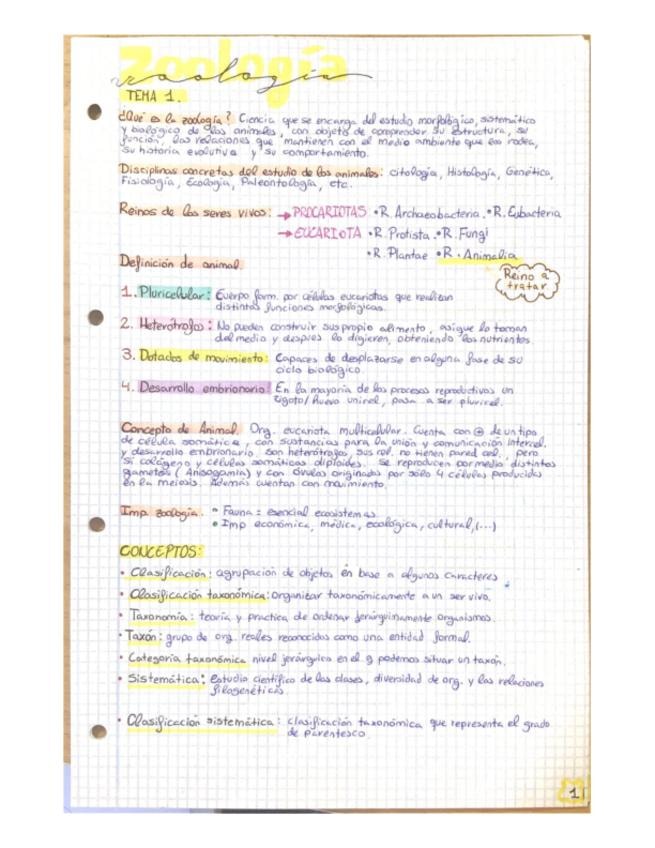 Zoología
zoología
TEMA 1.
¿Qué es la zoología? Ciencia que se encarga del estudio morfológico, sistemático
y biológico de los animales, con objeto de comprender su estructura, su
función, las relaciones que mantienen con el medio ambiente que los rodea,
su historia evolutiva y su comportamiento.
Disciplinas concretas del estudio de los animales: citología, Histología, Genética,
Fisiología, Ecología, Paleontología, etc.
Reinos de los seres vivos: → PROCARIOTAS • R. Archaeobacteria. • R. Eubacteria
→ EUCARIOTA • R. Protista. • R. Fungi
• R. Plantae • R. Animalia
Definición de animal.
Reino a
tratar
1. Pluricelular: Cuerpo form. por células eucariotas que realizan
distintas funciones morfológicas.
2. Heterótrofos: No pueden construir sus propio alimento, asique lo toman
del medio y después lo digieren, obteniendo los nutrientes.
3. Dotados de movimiento: Capaces de desplazarse en alguna fase de su
ciclo biológico.
4. Desarrollo embrionario: En la mayoría de los procesos reproductivos un
zigoto/huevo unicel, pasa a ser pluricel.
Concepto de Animal. Org. eucariota multicelular. Cuenta con ⊕ de un tipo
de célula somática, con sustancias para la unión y comunicación intercel.
y desarrollo embrionario. Son heterótrofos, sus cel. no tienen pared cel., pero
sí colágeno y células somáticas diploides. Se reproducen por medio distintos
gametos (Anisogamia) y con óvulos originados por sólo 4 células producidas
en la meiosis. Además cuentan con movimiento.
Imp. zoología. • Fauna = esencial ecosistemas
• Imp económica, médica, ecológica, cultural, (...)
CONCEPTOS:
• Clasificación: agrupación de objetos en base a algunos caracteres
• Clasificación taxonómica: Organizar taxonómicamente a un ser vivo.
• Taxonomía: teoría y practica de ordenar jerárquicamente organismos.
• Taxón: grupo de org. reales reconocidos como una entidad formal.
• Categoría taxonómica nivel jerárquico en el q podemos situar un taxón.
• Sistemática: Estudio científico de las clases, diversidad de org. y las relaciones
filogenéticas.
• Clasificación sistemática: clasificación taxonómica que representa el grado
de parentesco.
1